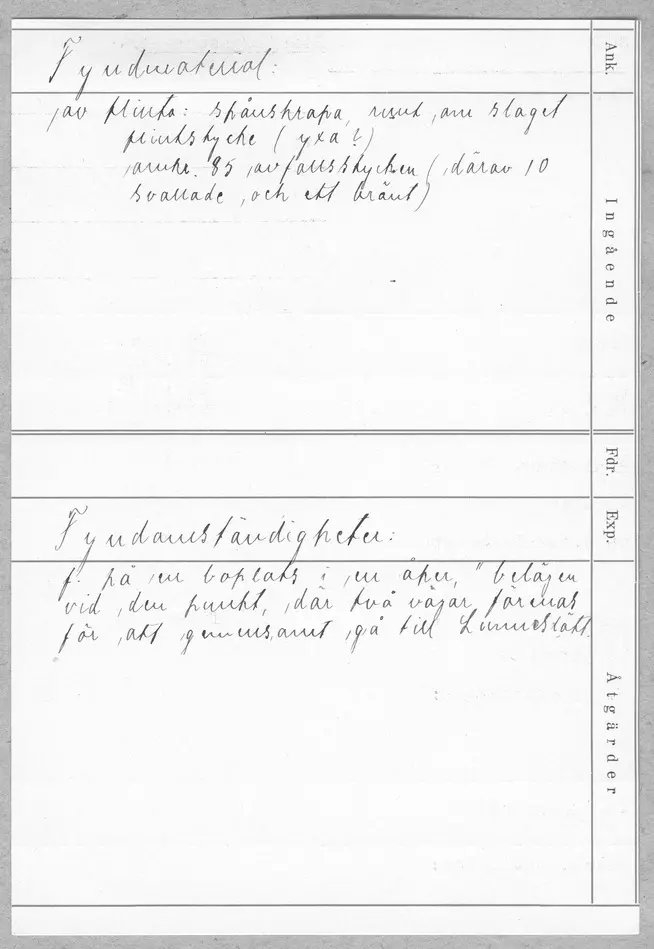 Fyndmaterial:
av flinta: spånskrapa, runt, om slaget
flintstycke (yxa?)
omkr. 85 avfallsstycken (därav 10
svallade och ett bränt)
Fyndomständigheter:
f. på en boplats i en åker, "belägen
vid den punkt, där två vägar förenas
för att gemensamt gå till Lunneslätt.
Ank.
Ingående
Fdr.
Exp.
Åtgärder